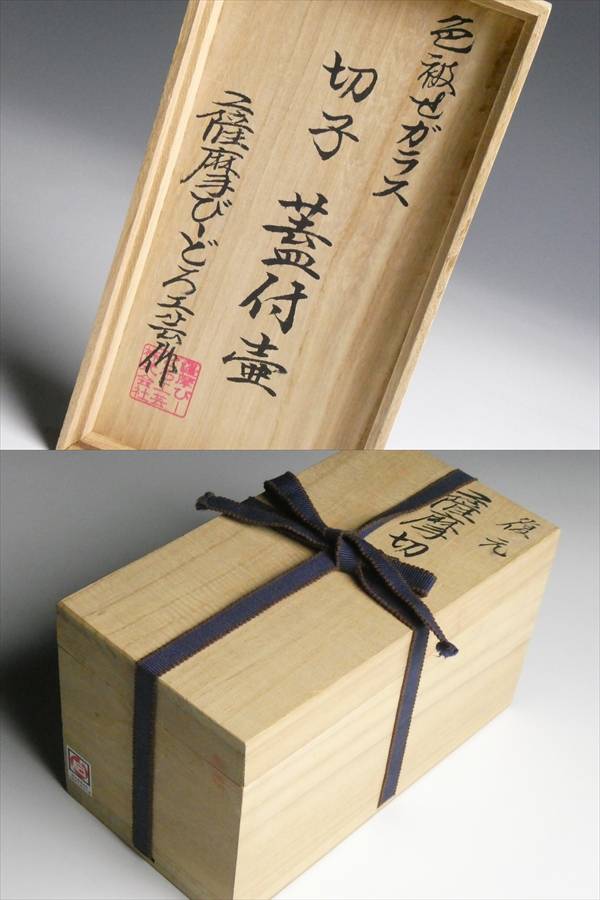 色被せガラス
切子 蓋付壷
薩摩びーどろ工芸作
復元
薩摩切